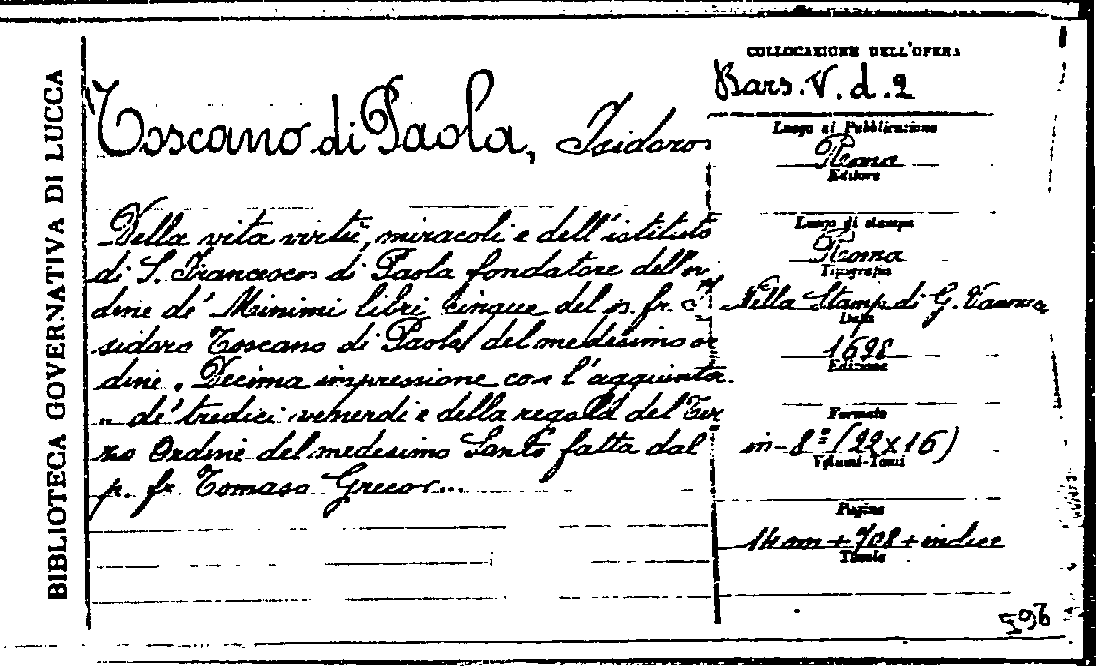 BIBLIOTECA GOVERNATIVA DI LUCCA
Toscano di Paola, Isidoro
Della vita virtù, miracoli e dell'istituto
di S. Francesco di Paola fondatore dell'or
dine de' Minimi libri cinque del p. fr. I
sidoro Toscano di Paola del medesimo or
dine. Decima impressione con l'aggiunta
de' tredici venerdi e della regola del Ter
zo Ordine del medesimo Santo fatta dal
p. fr. Tomaso Grecor...
COLLOCAZIONE DELL'OPERA
Bars. V. d. 2
Luogo di Pubblicazione
Roma
Editore
Luogo di stampa
Roma
Tipografia
Nella Stamp. di G.
Data
1698
Edizione
Formato
in-8º (22x16)
Volumi-Tomi
Pagine
14 nn + 708 + indice
Tavole
596